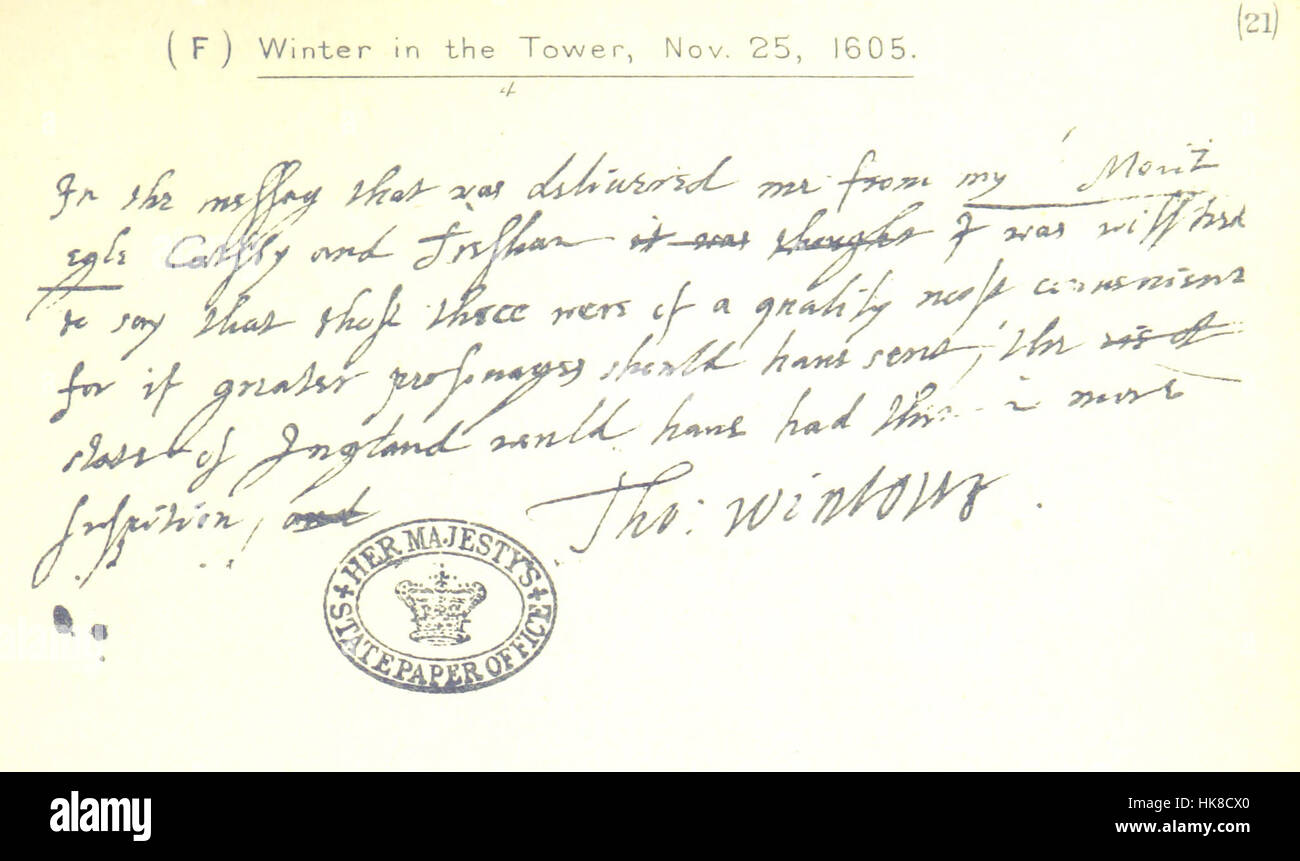 (21)
(F) Winter in the Tower, Nov. 25, 1605.
In the messag that was delivered me from my Mont
egle Catesby and Tresham it was thought I was willed
to say that thos three were of a quality most convenient
for if greater personages should have sent, the
state of Ingland would have had them in more
suspition, and
Tho: Wintour
HER MAJESTY'S
STATE PAPER OFFICE
alamy stock photo
HK8CX0
www.alamy.com